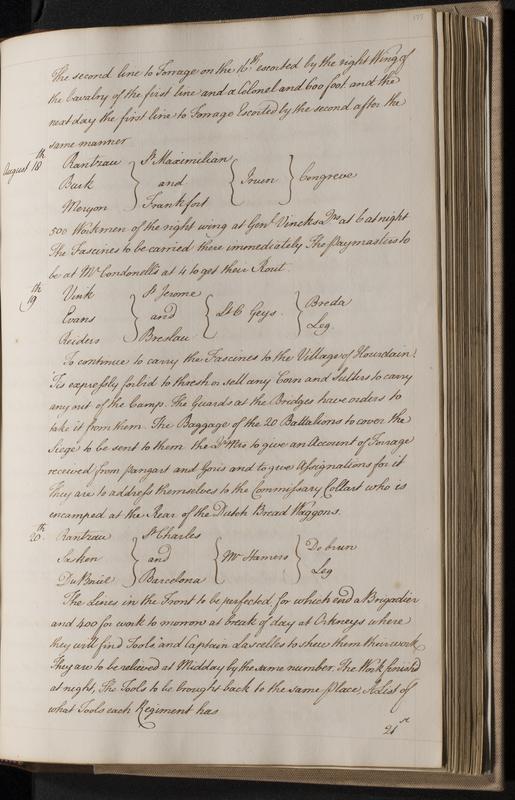 The second line to Forrage on the 16th escorted by the right Wing of
the Cavalry of the first line and a Colonel and 600 foot and the
next day the first line to Forrage Escorted by the second after the
same manner
August 18th Rantzau St Maximilian
Busk and Iruen Congreve
Meryon Frankfort
500 Workmen of the right wing at Genl Vincks Qrs at 6 at night
The Fascines to be carried there immediately The Paymasters to
be at Mr Condonells at 4 to get their Rout.
19th Vink St Jerome Breda
Evans and Lt C Geys.
Reiders Breslau Leg.
To continue to carry the Fascines to the Village of Hourdain.
Tis expressly forbid to thresh or sell any Corn and Sutlers to carry
any out of the Camp. The Guards at the Bridges have orders to
take it from them. The Baggage of the 20 Battalions to cover the
Siege to be sent to them the Qr Mrs to give an Account of Forrage
received from Pangart and Goris and to give Assignations for it
They are to address themselves to the Commissary Collart who is
encamped at the Rear of the Dutch Bread Waggons.
20th Rantzau St Charles Dobrun
Sasken and Mr Hamers
Du Barcelona Leg
The Lines in the Front to be perfected for which end a Brigadier
and 400 for work to morrow at break of day at Orkneys where
they will find Tools and Captain Lascelles to shew them their work
They are to be releived at Midday by the same number. The Work finishd
at night, The Tools to be brought back to the same place, A List of
what Tools each Regiment has
21st